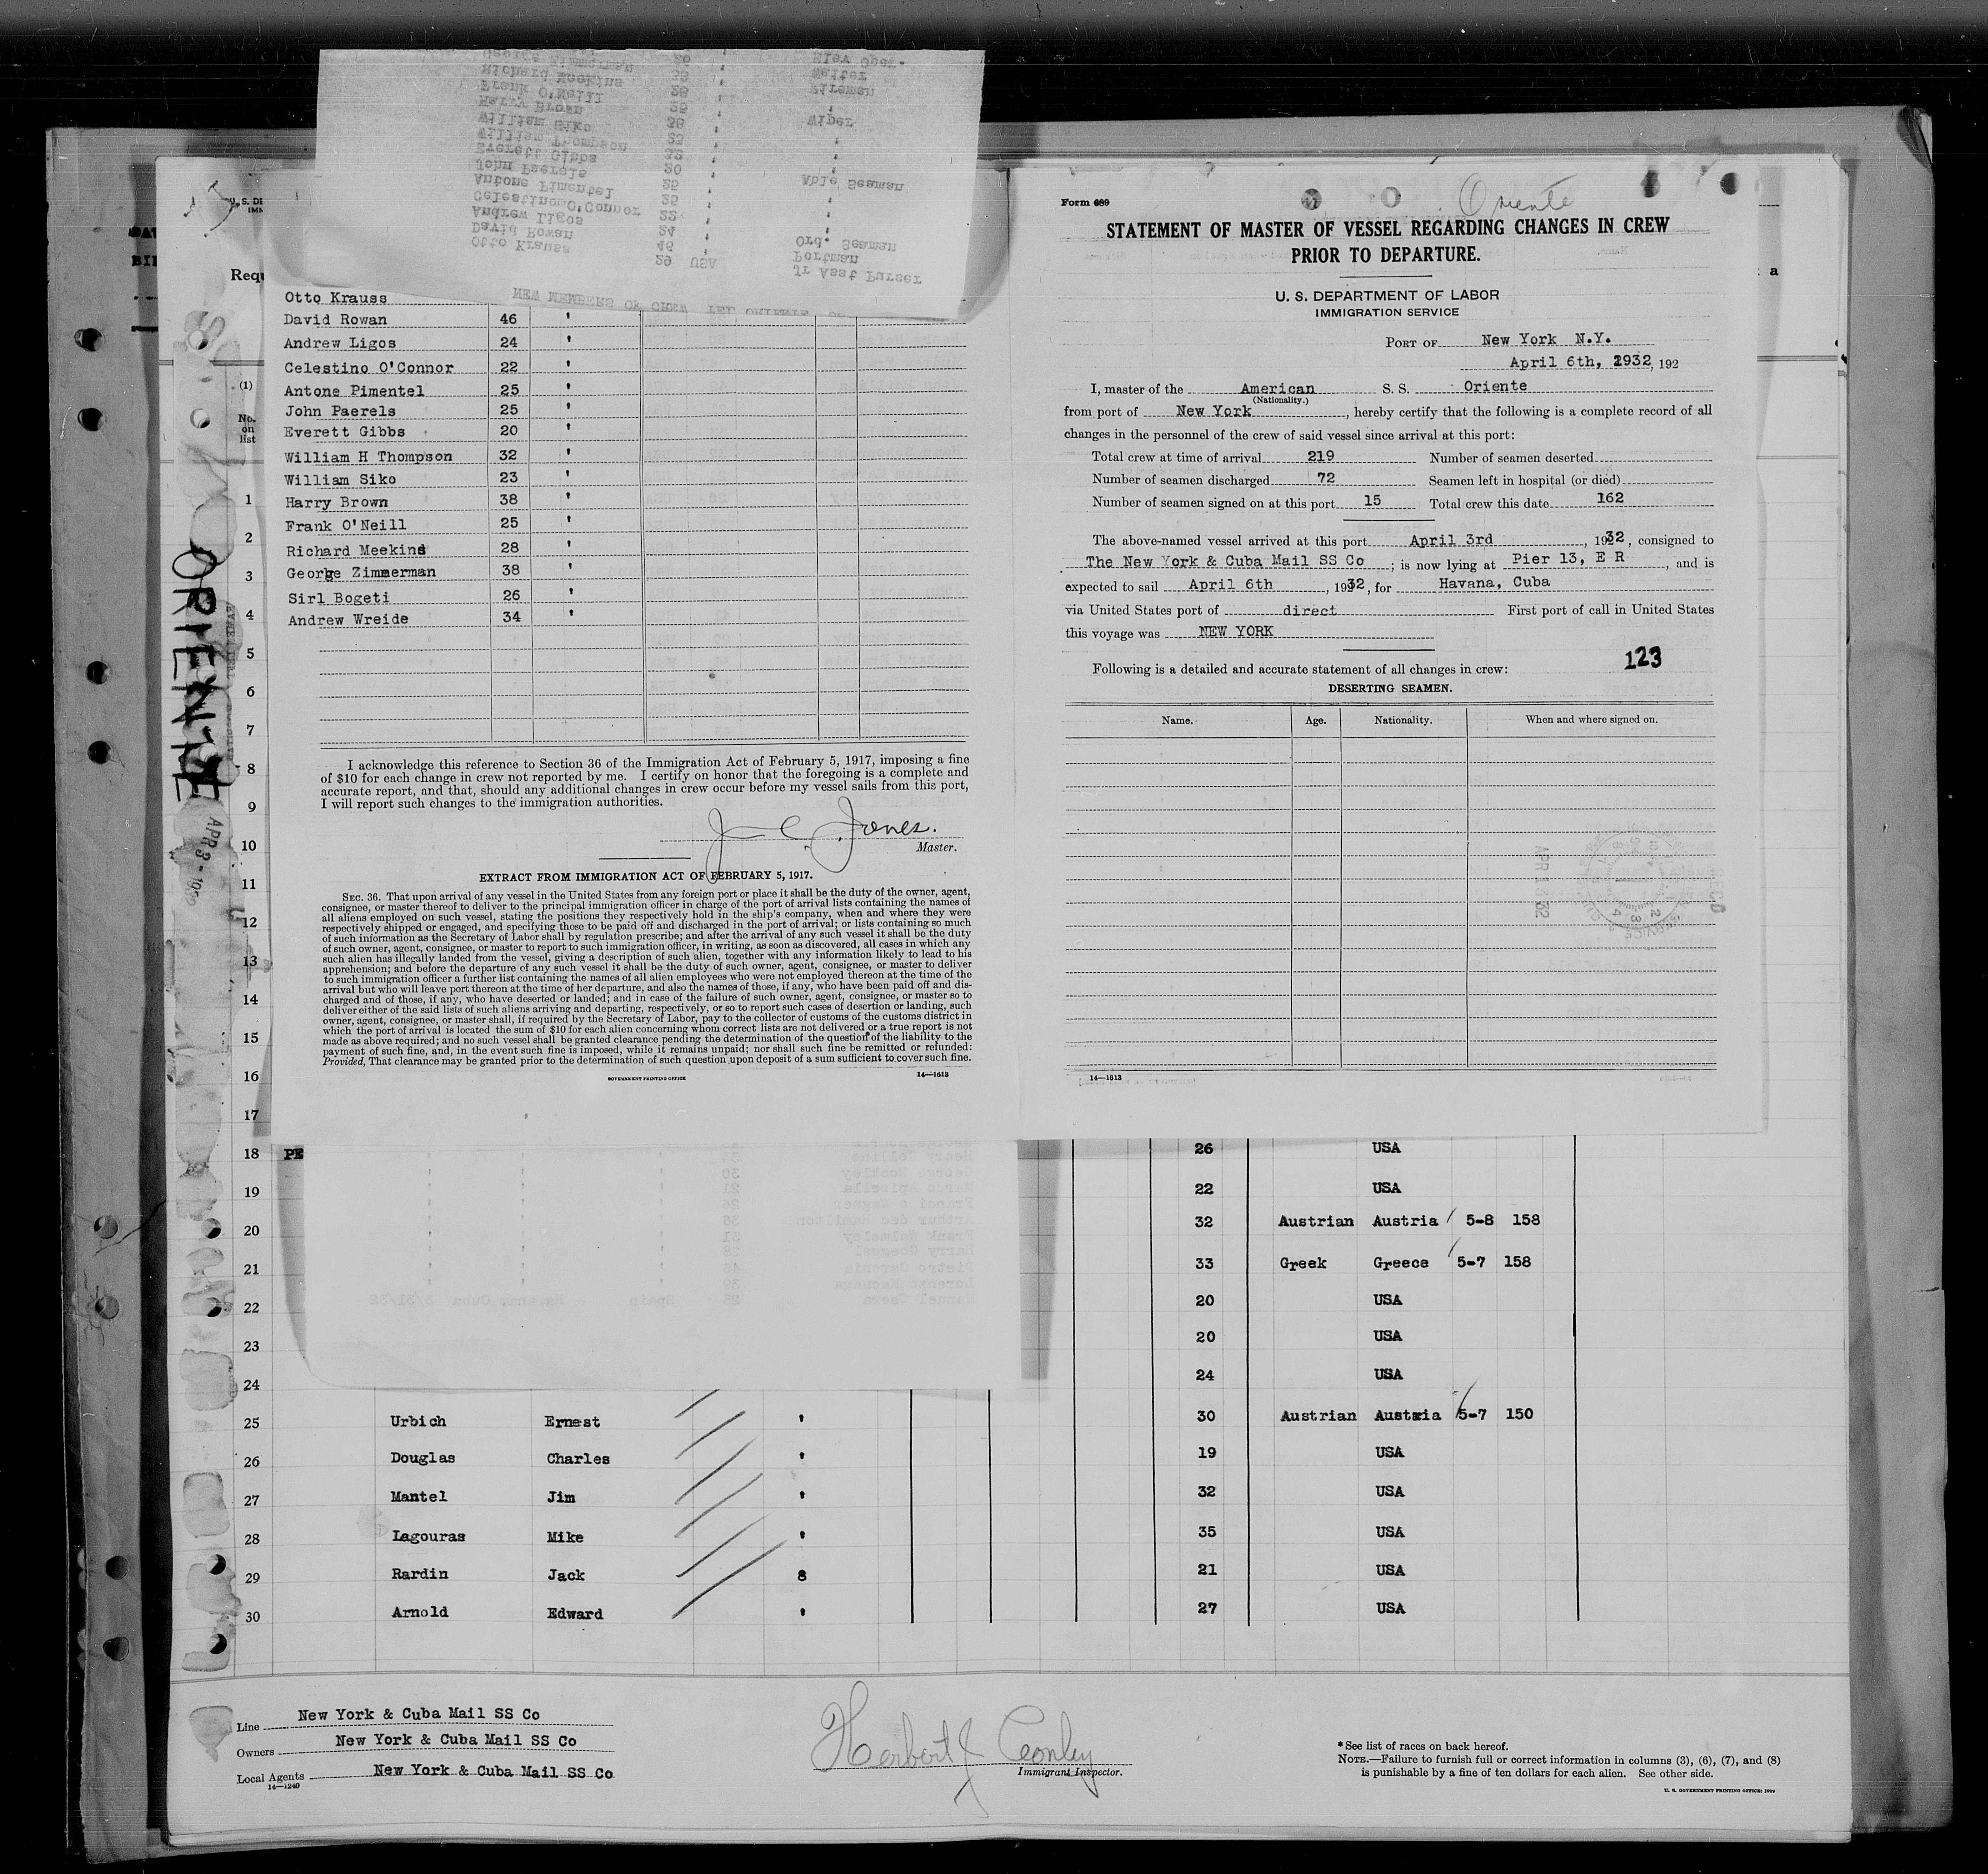 George Zimmerman 26 Elev Oper.
Richard Meekins 38 ' Waiter
Frank O'Neill 28 ' Fireman
Harry Brown 25 ' '
William Siko 38 ' Wiper
William Thompson 23 ' '
Everett Gibbs 32 ' '
John Paerels 20 ' '
Antone Pimentel 25 ' Able Seaman
Celestino O'Connor 25 '
Andrew Ligos 22 '
David Rowan 24 ' Ord. Seaman
Otto Krauss 46 ' Portman
29 USA Jr Asst Purser
NEW MEMBERS OF CREW TEL ORIENTE
Otto Krauss
David Rowan 46 '
Andrew Ligos 24 '
Celestino O'Connor 22 '
Antone Pimentel 25 '
John Paerels 25 '
Everett Gibbs 20 '
William H Thompson 32 '
William Siko 23 '
Harry Brown 38 '
Frank O'Neill 25 '
Richard Meekins 28 '
George Zimmerman 38 '
Sirl Bogeti 26 '
Andrew Wreide 34 '
I acknowledge this reference to Section 36 of the Immigration Act of February 5, 1917, imposing a fine
of $10 for each change in crew not reported by me. I certify on honor that the foregoing is a complete and
accurate report, and that, should any additional changes in crew occur before my vessel sails from this port,
I will report such changes to the immigration authorities.
J C Jones.
Master.
EXTRACT FROM IMMIGRATION ACT OF FEBRUARY 5, 1917.
SEC. 36. That upon arrival of any vessel in the United States from any foreign port or place it shall be the duty of the owner, agent,
consignee, or master thereof to deliver to the principal immigration officer in charge of the port of arrival lists containing the names of
all aliens employed on such vessel, stating the positions they respectively hold in the ship's company, when and where they were
respectively shipped or engaged, and specifying those to be paid off and discharged in the port of arrival; or lists containing so much
of such information as the Secretary of Labor shall by regulation prescribe; and after the arrival of any such vessel it shall be the duty
of such owner, agent, consignee, or master to report to such immigration officer, in writing, as soon as discovered, all cases in which any
such alien has illegally landed from the vessel, giving a description of such alien, together with any information likely to lead to his
apprehension; and before the departure of any such vessel it shall be the duty of such owner, agent, consignee, or master to deliver
to such immigration officer a further list containing the names of all alien employees who were not employed thereon at the time of the
arrival but who will leave port thereon at the time of her departure, and also the names of those, if any, who have been paid off and dis-
charged and of those, if any, who have deserted or landed; and in case of the failure of such owner, agent, consignee, or master so to
deliver either of the said lists of such aliens arriving and departing, respectively, or so to report such cases of desertion or landing, such
owner, agent, consignee, or master shall, if required by the Secretary of Labor, pay to the collector of customs of the customs district in
which the port of arrival is located the sum of $10 for each alien concerning whom correct lists are not delivered or a true report is not
made as above required; and no such vessel shall be granted clearance pending the determination of the question of the liability to the
payment of such fine, and, in the event such fine is imposed, while it remains unpaid; nor shall such fine be remitted or refunded:
Provided, That clearance may be granted prior to the determination of such question upon deposit of a sum sufficient to cover such fine.
GOVERNMENT PRINTING OFFICE 14—1613
Form 689
Oriente
STATEMENT OF MASTER OF VESSEL REGARDING CHANGES IN CREW
PRIOR TO DEPARTURE.
U. S. DEPARTMENT OF LABOR
IMMIGRATION SERVICE
PORT OF New York N.Y.
April 6th, 1932, 192
I, master of the American S. S. Oriente
(Nationality.)
from port of New York, hereby certify that the following is a complete record of all
changes in the personnel of the crew of said vessel since arrival at this port:
Total crew at time of arrival 219 Number of seamen deserted
Number of seamen discharged 72 Seamen left in hospital (or died)
Number of seamen signed on at this port 15 Total crew this date 162
The above-named vessel arrived at this port April 3rd, 1932, consigned to
The New York & Cuba Mail SS Co; is now lying at Pier 13, E R, and is
expected to sail April 6th, 1932, for Havana, Cuba
via United States port of direct First port of call in United States
this voyage was NEW YORK
123
Following is a detailed and accurate statement of all changes in crew:
DESERTING SEAMEN.
Name. Age. Nationality. When and where signed on.
APR 3 32
14—1613
ORIENTE
APR 3 -
U. S. DE
IMM
Requ
(1)
No.
on
list
1
2
3
4
5
6
7
8
9
10
11
12
13
14
15
16
17
18 PE 26 USA
19 22 USA
20 32 Austrian Austria 5-8 158
21 33 Greek Greece 5-7 158
22 20 USA
23 20 USA
24 24 USA
25 Urbich Ernest ' 30 Austrian Austria 5-7 150
26 Douglas Charles ' 19 USA
27 Mantel Jim ' 32 USA
28 Lagouras Mike ' 35 USA
29 Rardin Jack 8 21 USA
30 Arnold Edward ' 27 USA
Line New York & Cuba Mail SS Co
Owners New York & Cuba Mail SS Co
Local Agents New York & Cuba Mail SS Co
14—1240
Herbert J Conley
Immigrant Inspector.
* See list of races on back hereof.
NOTE.—Failure to furnish full or correct information in columns (3), (6), (7), and (8)
is punishable by a fine of ten dollars for each alien. See other side.
U. S. GOVERNMENT PRINTING OFFICE: 1929